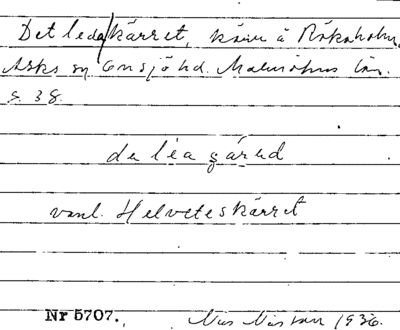 Det leda/kärret, kärr å Rökaholm,
Asks sn Onsjö hd. Malmöhus län.
s. 38.
de léa gárhd
vanl. Helveteskärret
Nr 5707. Nils Nilsson 1936.